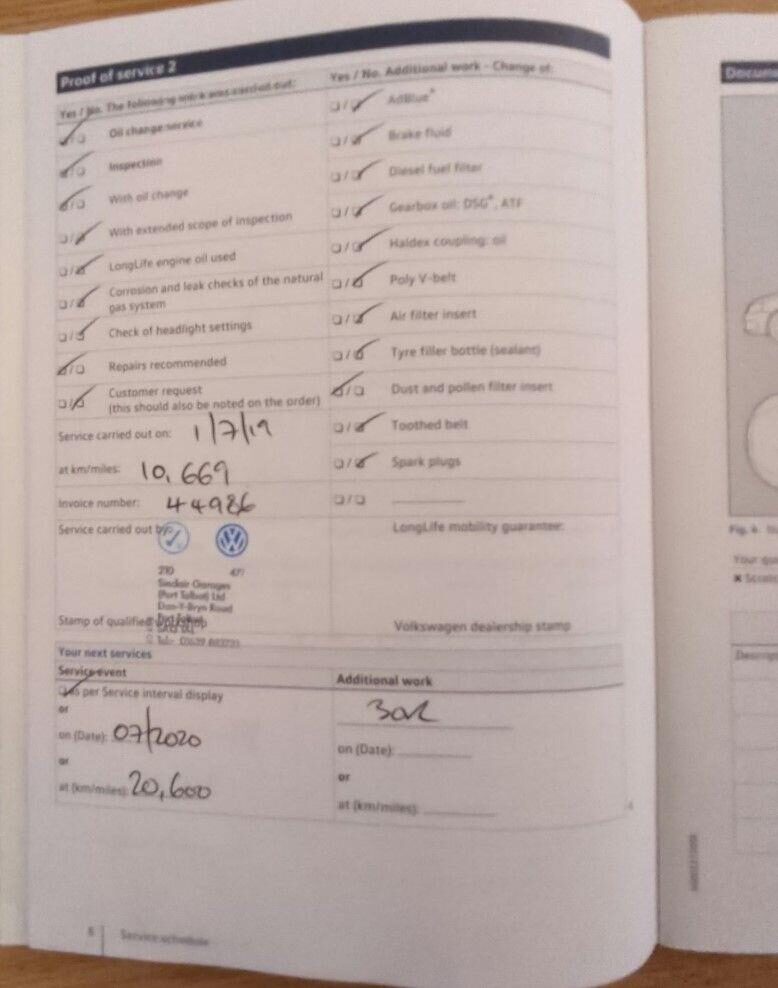 Proof of service 2
Yes / No. The following work was carried out:
Oil change service
Inspection
With oil change
With extended scope of inspection
LongLife engine oil used
Corrosion and leak checks of the natural
gas system
Check of headlight settings
Repairs recommended
Customer request
(this should also be noted on the order)
Service carried out on: 1/7/19
at km/miles: 10,669
Invoice number: 44986
Service carried out by:
210
Sinclair Garages
(Port Talbot) Ltd
Dan-Y-Bryn Road
Port Talbot
Stamp of qualified workshop
Yes / No. Additional work - Change of:
AdBlue®
Brake fluid
Diesel fuel filter
Gearbox oil: DSG®, ATF
Haldex coupling: oil
Poly V-belt
Air filter insert
Tyre filler bottle (sealant)
Dust and pollen filter insert
Toothed belt
Spark plugs
LongLife mobility guarantee:
Volkswagen dealership stamp
Your next services
Service event
as per Service interval display
or
on (Date): 07/2020
or
at (km/miles): 20,600
Additional work
on (Date):
or
at (km/miles):
8 Service schedule
Docum
Fig. 6
Your gu
Descrip